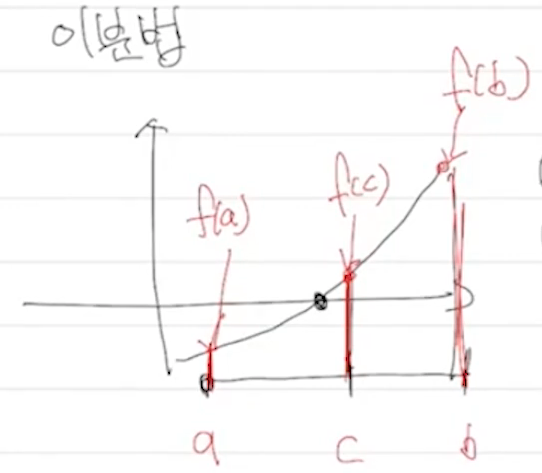 이분법
f(b)
f(c)
f(a)
a c b